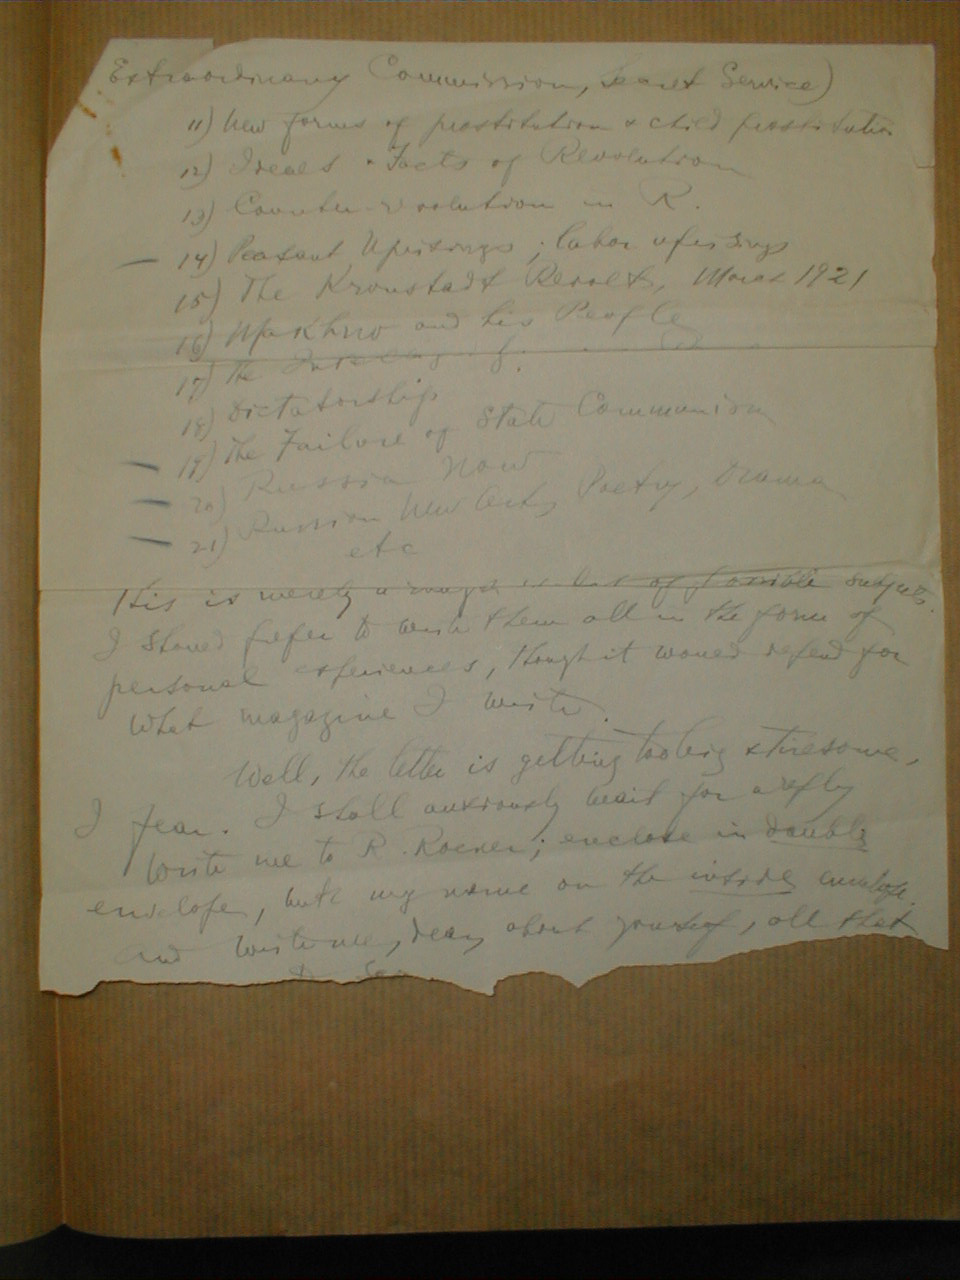 Extraordinary Commission, Secret Service)
11) New forms of prostitution & child prostitution
12) Ideals & Facts of Revolution
13) Counter-revolution in R.
14) Peasant Uprisings; labor uprisings
15) The Kronstadt Revolt, March 1921
16) Makhno and his People
17) The
18) Dictatorship
19) The Failure of State Communism
20) Russia Now
21) Russian New Art, Poetry, Drama
etc
This is merely a rough list of possible subjects.
I should prefer to write them all in the form of
personal experiences, though it would depend for
what magazine I write.
Well, the letter is getting too long & tiresome,
I fear. I shall anxiously wait for a reply
Write me to R. Rocker; enclose in double
envelope, with my name on the inside envelope.
And write me, dear, about yourself, all that